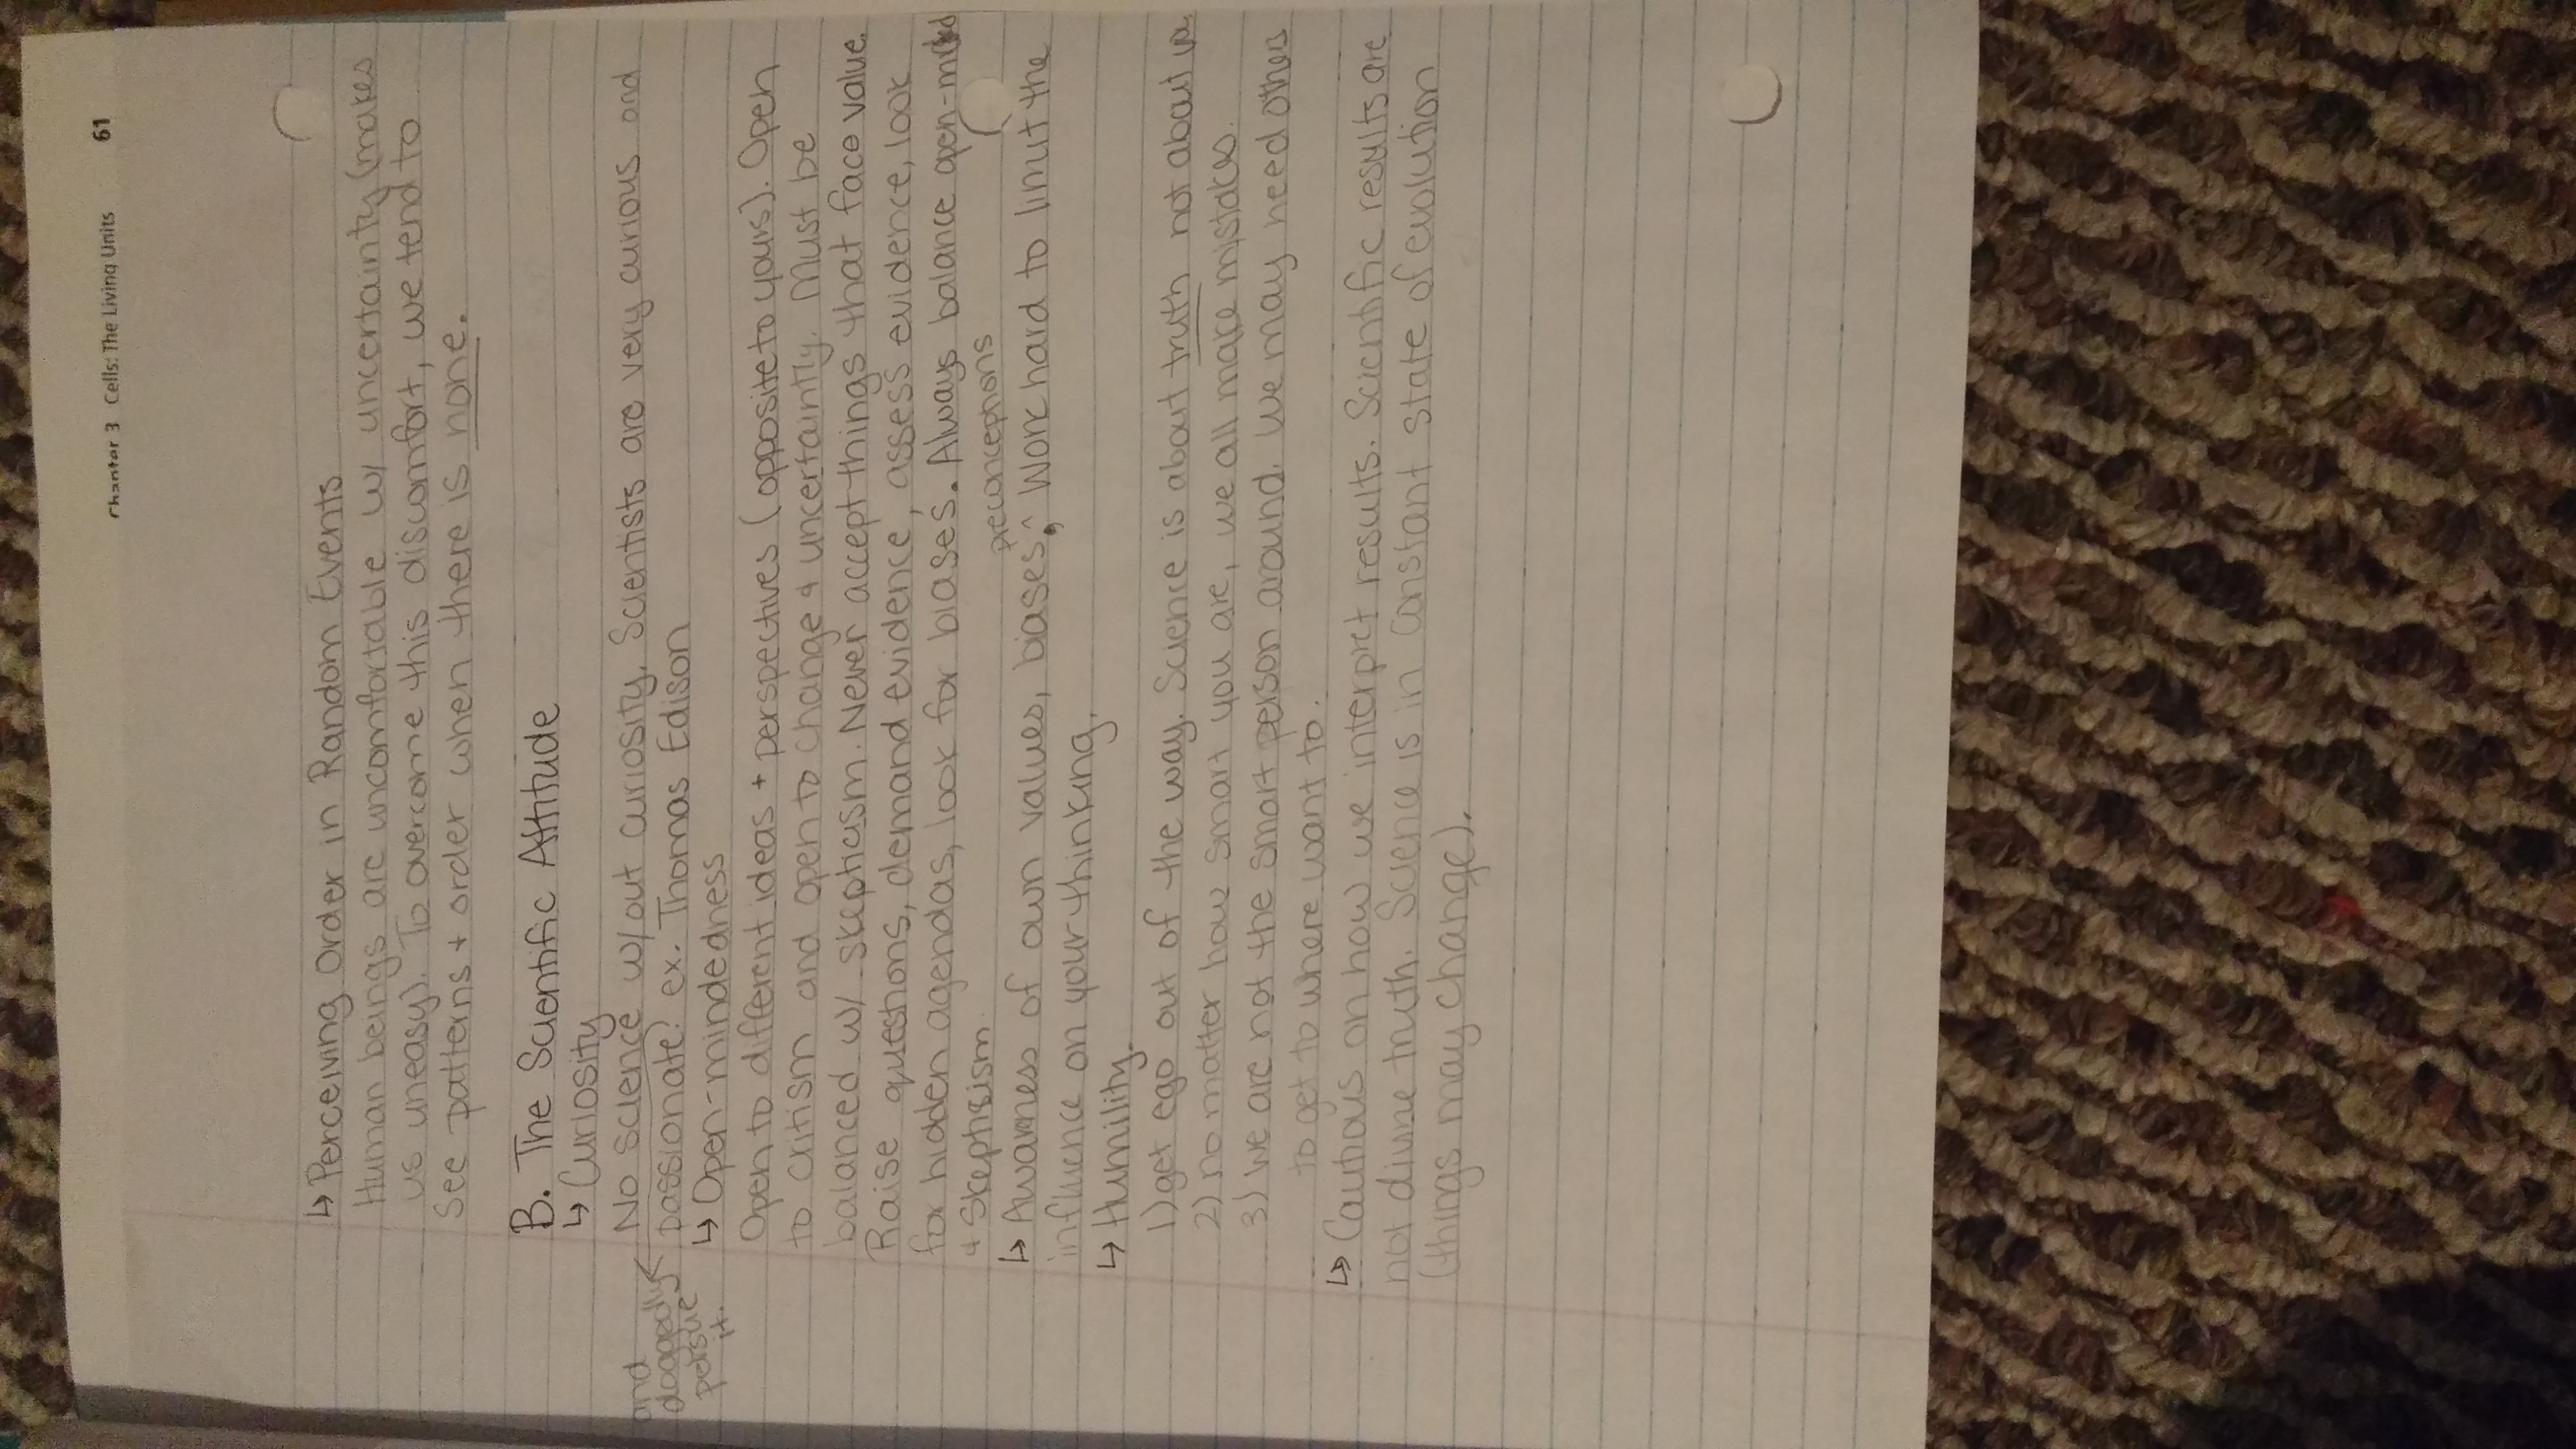 Chapter 3 Cells: The Living Units 61
↳ Perceiving Order in Random Events
Human beings are uncomfortable w/ uncertainty (makes
us uneasy). To overcome this discomfort, we tend to
see patterns + order when there is none.
B. The Scientific Attitude
↳ Curiosity
No science w/out curiosity. Scientists are very curious and
passionate! ex. Thomas Edison
and
doggedly
persue
it.
↳ Open-mindedness
Open to different ideas + perspectives (opposite to yours). Open
to critism and open to change & uncertaintly. Must be
balanced w/ skepticism. Never accept things that face value.
Raise questions, demand evidence, assess evidence, look
for hidden agendas, look for biases. Always balance open-minded
& Skeptisism
↳ Awarness of own values, biases, ^ Work hard to limit the
preconceptions
influence on your thinking.
↳ Humility.
1) get ego out of the way. Science is about truth not about us.
2) no matter how smart you are, we all make mistakes.
3) we are not the smart person around. We may need others
to get to where want to.
↳ Cautious on how we interpret results. Scientific results are
not divine truth. Science is in constant state of evolution
(things may change).